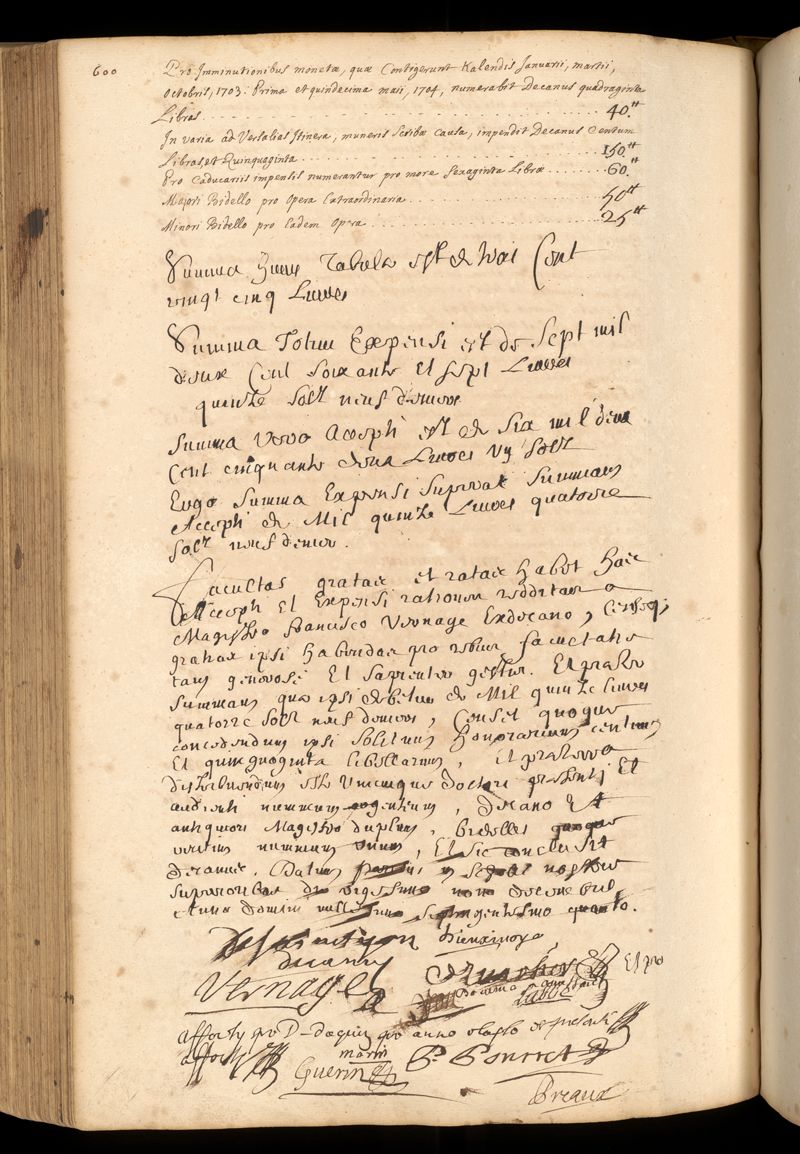 600
Pro Imminutionibus monetæ, quæ Contigerunt Kalendis Januarii, martii,
Octobris, 1703. Prima et quindecima maii, 1704, numerabit Decanus quadraginta
Libras 40.tt
In varia ad Versalias Itinera, muneris Scribæ causa, impendit Decanus Centum
Libras et Quinquaginta 150.tt
Pro Caducariis impensis numerantur pro more Sexaginta Libræ 60.tt
Majori Bidello pro Opera Extraordinaria 50tt
Minori Bidello pro Eadem Opera 25tt
Summa hujus Tabulæ est de trois Cent
vingt cinq Livres
Summa Totius Expensi est de Sept mil
deux Cent soixante et sept Livres
quinze solz neuf deniers
Summa vero Accepti est de six mil deux
Cent cinquante deux Livres un solz
Ergo Summa Expensi superat Summam
Accepti de Mil quinze Livres quatorze
solz neuf denier.
Facultas gratam et ratam habet hanc
Accepti Et Expensi rationem redditam a
Magistro Francisco Vernage Exdecano,
gratias ipsi habendas pro rebus facultatis
tam generose Et sapienter gestis. Et præter
summam quæ ipsi debetur de Mil quinze livres
quatorze solz neuf deniers, Censet quoque
concedendum ipsi solitum honorarium centum
Et quinquaginta libellarum, et præterea
distribuendum esse Unicuique doctori præsenti Et
audienti nummum argenteum, decano Et
antiquiori Magistro duplum, bidellis quoque
nummum unum, Et sic conclusit
decanus. Datum in scholis nostris
superioribus die vigesimo nono decembris
Anno domini millesimo septingentesimo quarto.
decanus
Vernage
Et pro
afforty pro D. daquin pro anno elapso et presenti
afforty
marin
Guerin
P. Poirret
Preaux